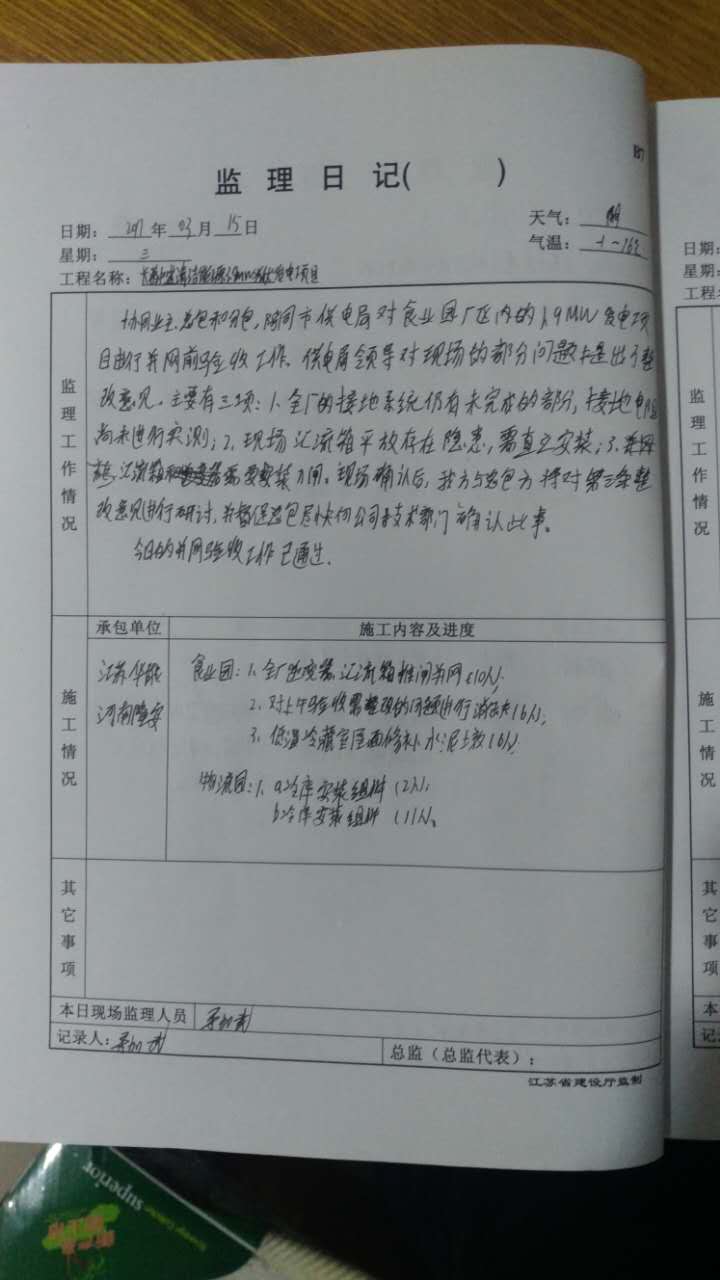 监 理 日 记( )
日期: 2017 年 03 月 15 日
天气: 阴
星期: 三
气温:
工程名称: 发电项目
监理工作情况
协同业主、总包和分包,陪同市供电局对食业园厂区内的1.9MW发电项
目进行并网前验收工作。供电局领导对现场的部分问题提出了整
改意见。主要有三项:1、全厂的接地系统仍有未完成的部分,接地电阻
尚未进行实测;2、现场汇流箱平放存在隐患,需直立安装;3、
汇流箱 需要安装刀闸。现场确认后,我方与总包方将对第三条整
改意见进行研讨,并督促总包尽快向公司技术部门确认此事。
今日的并网验收工作已通过.
承包单位
施工内容及进度
施工情况
江苏华能
河南隆安
食业园:1、全厂逆变器、汇流箱推闸并网(10人);
2、对上午验收需整改的问题进行消缺(6人);
3、低温冷藏室屋面修补水泥墩(6人)
物流园:1、a冷库安装组件(2人);
b冷库安装组件(11人)。
其它事项
本日现场监理人员
记录人:
总监(总监代表):
江苏省建设厅监制
superior
日期:
星期:
工程
监理工作情况
施工情况
其它事项
本
记